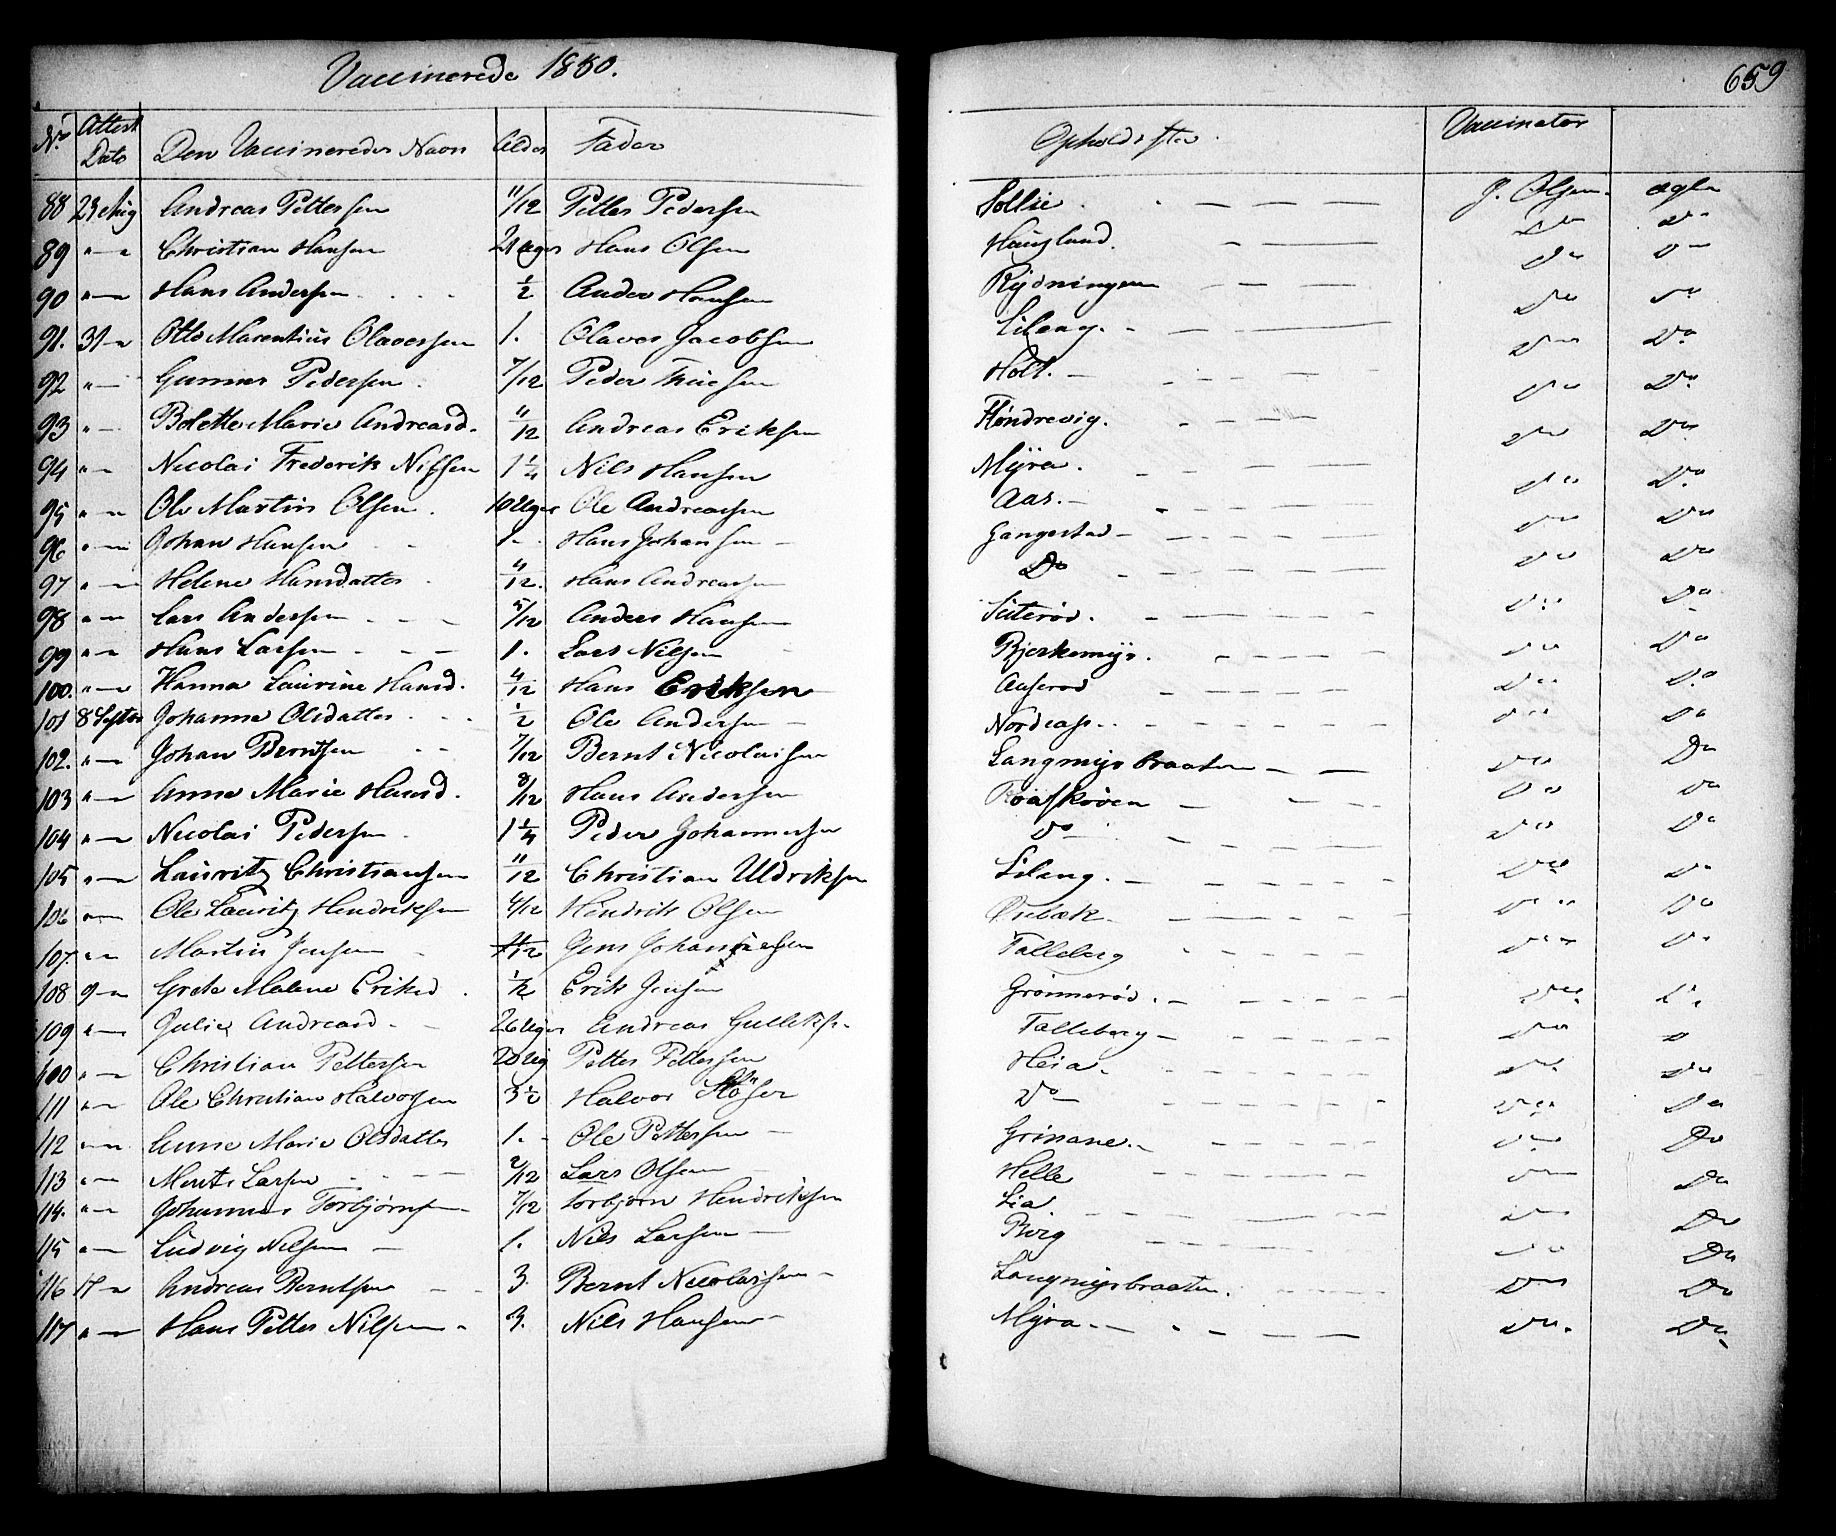 Vaccinerede 1850.
659
No Attest Dato Den Vaccineredes Navn Alder Fader Opholdssted Vaccinator
88 23 Aug Andreas Pettersen 11/12 Petter Pedersen Sollie J. Olsen ægte
89 " — Christian Hansen 21 Uger Hans Olsen Haugland. Do Do
90 " — Hans Andersen 1/2 Anders Hansen Rydningen Do Do
91. 31 — Otto Marentius Olavessen 1. Olaves Jacobsen Lileng. Do Do
92 " — Gunner Pedersen 7/12 Peder Thuesen Holt. Do Do
93 " — Bolette Marie Andreasd. 11/12 Andreas Eriksen Høndrevig. Do Do
94 " — Nicolai Frederik Nilsen 1 1/4 Nils Hansen Myra. Do Do
95 " — Ole Martin Olsen 10 Uger Ole Andreassen Aas. Do Do
96 " — Johan Hansen 1 Hans Johansen Gangestad Do Do
97 " — Helene Hansdatter /12. Hans Andreassen Do Do Do
98 " — Lars Andersen 5/12 Anders Hansen Siterød. Do Do
99 " — Hans Larsen 1. Lars Nilsen Bjerkemyr. Do Do
100. " — Hanna Laurine Hansd. /12 Hans Eriksen Aaserød Do Do
101 8 Septbr Johanne Olsdatter 1/2 Ole Andersen Nordeaas. Do Do
102. " — Johan Berntsen 7/12 Bernt Nicolaisen Langmyrbraaten Do Do
103 " — Anne Marie Hansd. 8/12 Hans Andersen Roaskoven Do Do
104 " — Nicolai Pedersen 1 1/4 Peder Johannesen Do Do Do
105 " — Lauritz Christiansen 11/12 Christian Uldriksen Lileng. Do Do
106 " — Ole Lauritz Hendriksen 4/12 Hendrik Olsen Do Do
107. " — Martin Jensen Jens Johannesen Falleberg Do Do
108 9 — Grete Malene Eriksd. 1/2 Erik Jensen Grønnerød. Do
109 " — Julie Andreasd. 26 Uger Andreas Gulleks. Falleberg Do
100 " — Christian Pettersen 20 Ug Petter Pettersen Heia. Do Do
111 " — Ole Christian Halvorsen 3 1/2 Halvor Do Do Do
112 " — Anne Marie Olsdatter 1. Ole Pettersen Grinane. Do Do
113 " — Larsen 2/12 Lars Olsen Helle Do Do
114. " — Johannes Torbjørns 7/12 Torbjørn Hendriksen Lia Do Do
115 " — Ludvig Nilsen 1. Nils Larsen Borg Do Do
116 17 — Andreas Berntsen 3. Bernt Nicolaisen Langmyrbraaten. Do Do
117 " — Hans Petter Nilsen 3. Nils Hansen Myra. Do Do